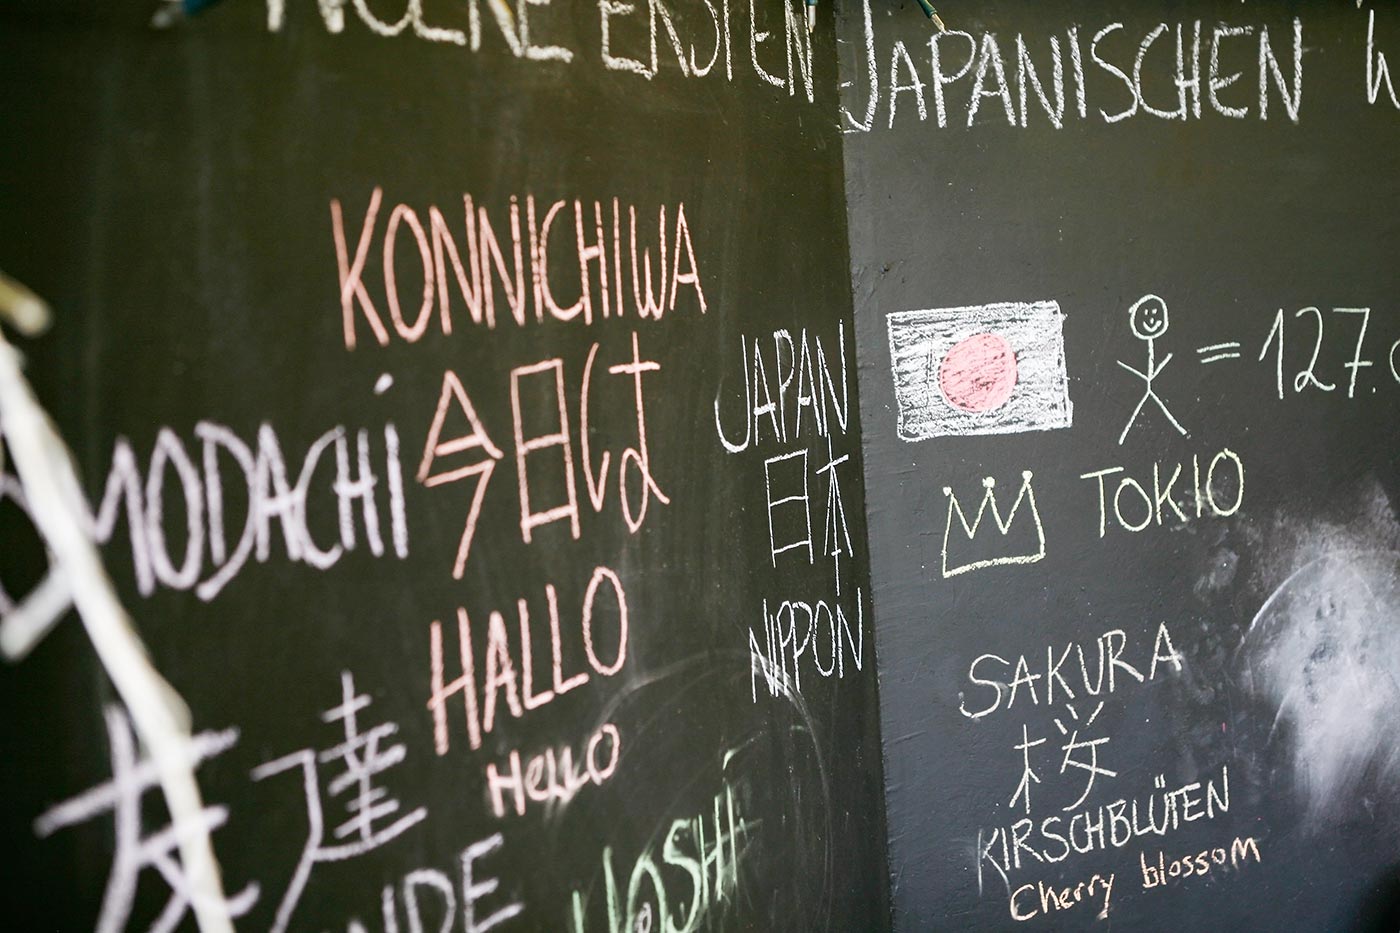 ERSTEN JAPANISCHEN
KONNICHIWA
今日は
HALLO
Hello
MODACHI
友達
NDE
HOSHI
JAPAN
日本
NIPPON
= 127.
TOKIO
SAKURA
桜
KIRSCHBLÜTEN
Cherry blossom